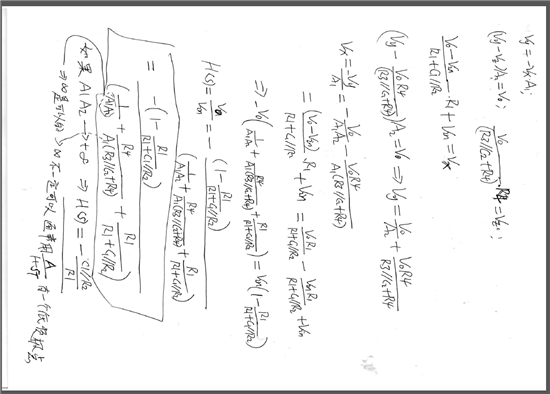 Vy = -Vx A1
(Vy - Vz)A2 = Vo; Vo/(R3//C2+R4) · R4 = Vz;
(Vo-Vin)/(R1+C1//R2) · R1 + Vin = Vx
(Vy - VoR4/(R3//C2+R4))A2 = Vo ⇒ Vy = Vo/A2 + VoR4/(R3//C2+R4)
Vx = -Vy/A1 = -Vo/(A1A2) - VoR4/(A1(R3//C2+R4))
= (Vo-Vin)/(R1+C1//R2) R1 + Vin = VoR1/(R1+C1//R2) - VinR1/(R1+C1//R2) + Vin
⇒ -Vo(1/(A1A2) + R4/(A1(R3//C2+R4)) + R1/(R1+C1//R2)) = Vin(1 - R1/(R1+C1//R2))
H(s) = Vo/Vin = - (1 - R1/(R1+C1//R2)) / (1/(A1A2) + R4/(A1(R3//C2+R4)) + R1/(R1+C1//R2))
= -(1 - R1/(R1+C1//R2)) / (1/(A1A2) + R4/(A1(R3//C2+R4)) + R1/(R1+C1//R2))
如果 A1A2 → +∞ ⇒ H(s) = - (C1//R2)/R1
⇒ ∞是可以的 ∞不一定可以 A/(1+S 有一个低频极点